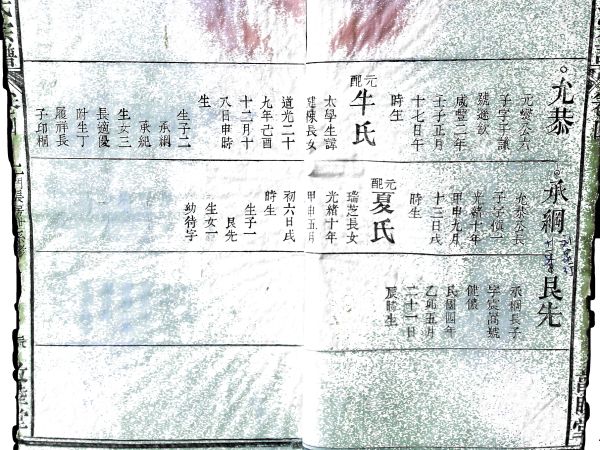 允恭
元燮公六
子字子謙
號遜欽
咸豐二年
壬子正月
十七日午
時生
元配
牛氏
太學生諱
建陳長女
道光二十
九年己酉
十二月十
八日申時
生
生子二
承綱
承紀
生女三
長適優
附生丁
履祥長
子印桐
承綱
允恭公長
子字子慎
光緒十年
甲申九月
十三日戌
時生
元配
夏氏
瑞芝長女
光緒十年
甲申五月
初六日戌
時生
生子一
艮先
生女一
幼待字
艮先
承綱長子
字宸嵩號
健儀
民國四年
乙卯五月
二十一日
辰時生
氏宗譜